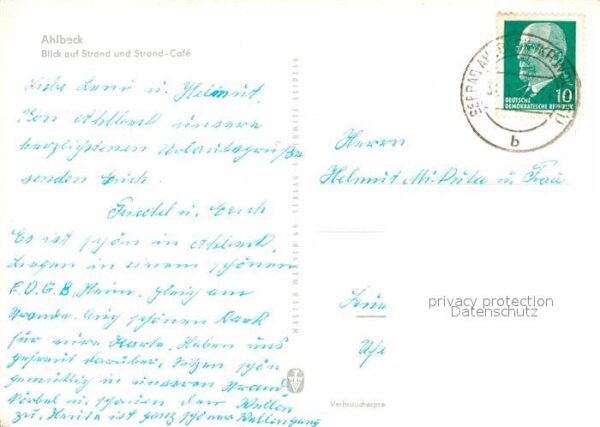 Ahlbeck
Blick auf Strand und Strand-Café
Liebe Leni u. Helmut.
Von Ahlbeck unsere
herzlichsten Urlaubsgrüße
senden Euch
Friedel u. Erich
Es ist schön in Ahlbeck.
Liegen in einem schönen
F.D.G.B. Heim, gleich am
Strande. Auch schönen Dank
für eure Karte. Haben uns
gefreut darüber, Sitzen schön
gemütlich in unseren Strand
körbel u. schauen den Wellen
zu. Heute ist ganz schöner Wellengang
WALTER WERNER KG · VERLAG · LEIPZIG
10
DEUTSCHE
DEMOKRATISCHE REPUBLIK
SEEBAD AHLBECK
b
Herrn
Helmut Mikula u. Frau
privacy protection
Datenschutz
Verbraucherpre